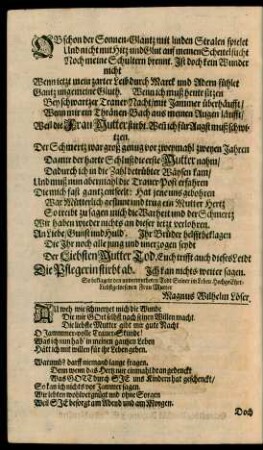 OBschon der Sonnen-Glantz mit linden Stralen spielet
Und nicht mit Hitz und Glut auf meinen Scheitel sticht
Noch meine Schultern brennt. Ist doch kein Wunder
nicht
Wenn jetzt mein zarter Leib durch Marck und Adern fühlet
Gantz ungemeine Gluth. Wenn ich muß heute sitzen
Bey schwartzer Traner-Nacht/mit Jammer überhäufft/
Wenn mir ein Thränen-Bach aus meinen Augen läufft/
Weil die Frau Mutter stirbt. Wen ich für Angst muß schwi-
tzen.
Der Schmertz war groß genug vor zweymahl zweyen Jahren
Da mir der harte Schluß die erste Mutter nahm/
Dadurch ich in die Zahl betrübter Wäysen kam/
Und muß nun abermahl die Trauer-Post erfahren
Die mich fast gantz entseelt: Hat jene uns gebohren
War Mütterlich gesinnt und trug ein Mutter Hertz
So treibt zu sagen mich die Warheit und der Schmertz
Wir haben wieder nichts an dieser jetzt verlohren.
An Liebe/Gunst und Huld: Ihr Brüder helfft beklagen
Die Ihr noch alle jung und unerzogen seydt
Der Liebsten Mutter Tod. Euch trifft auch dieses Leidt
Die Pflegerin stirbt ab. Ich kan nichts weiter sagen.
So beklagte den unvermutheten Todt Seiner im Leben Hochgeehrt-
Magnus Wilhelm Löser.
Ach weh wie schmertzet mich die Wunde
Die mir GOtt schlägt nach seinen Willen macht.
Die liebste Mutter gibt mir gute Nacht
O Jammer-volle Trauer-Stunde!
Was ich nun hab' in meinen gantzen Leben
Hätt ich mit willen für ihr Leben geben.
Warumb? darff niemand lange fragen.
Denn wenn das Hertz nur einmahl dran gedenckt
Was GOTT durch SIE uns Kindern hat geschenckt/
So kan ich nichts vor Jammer sagen.
Wir lebten wohlvergnügt und ohne Sorgen
Weil SIE besorgt am Abend und am Morgen.
Doch